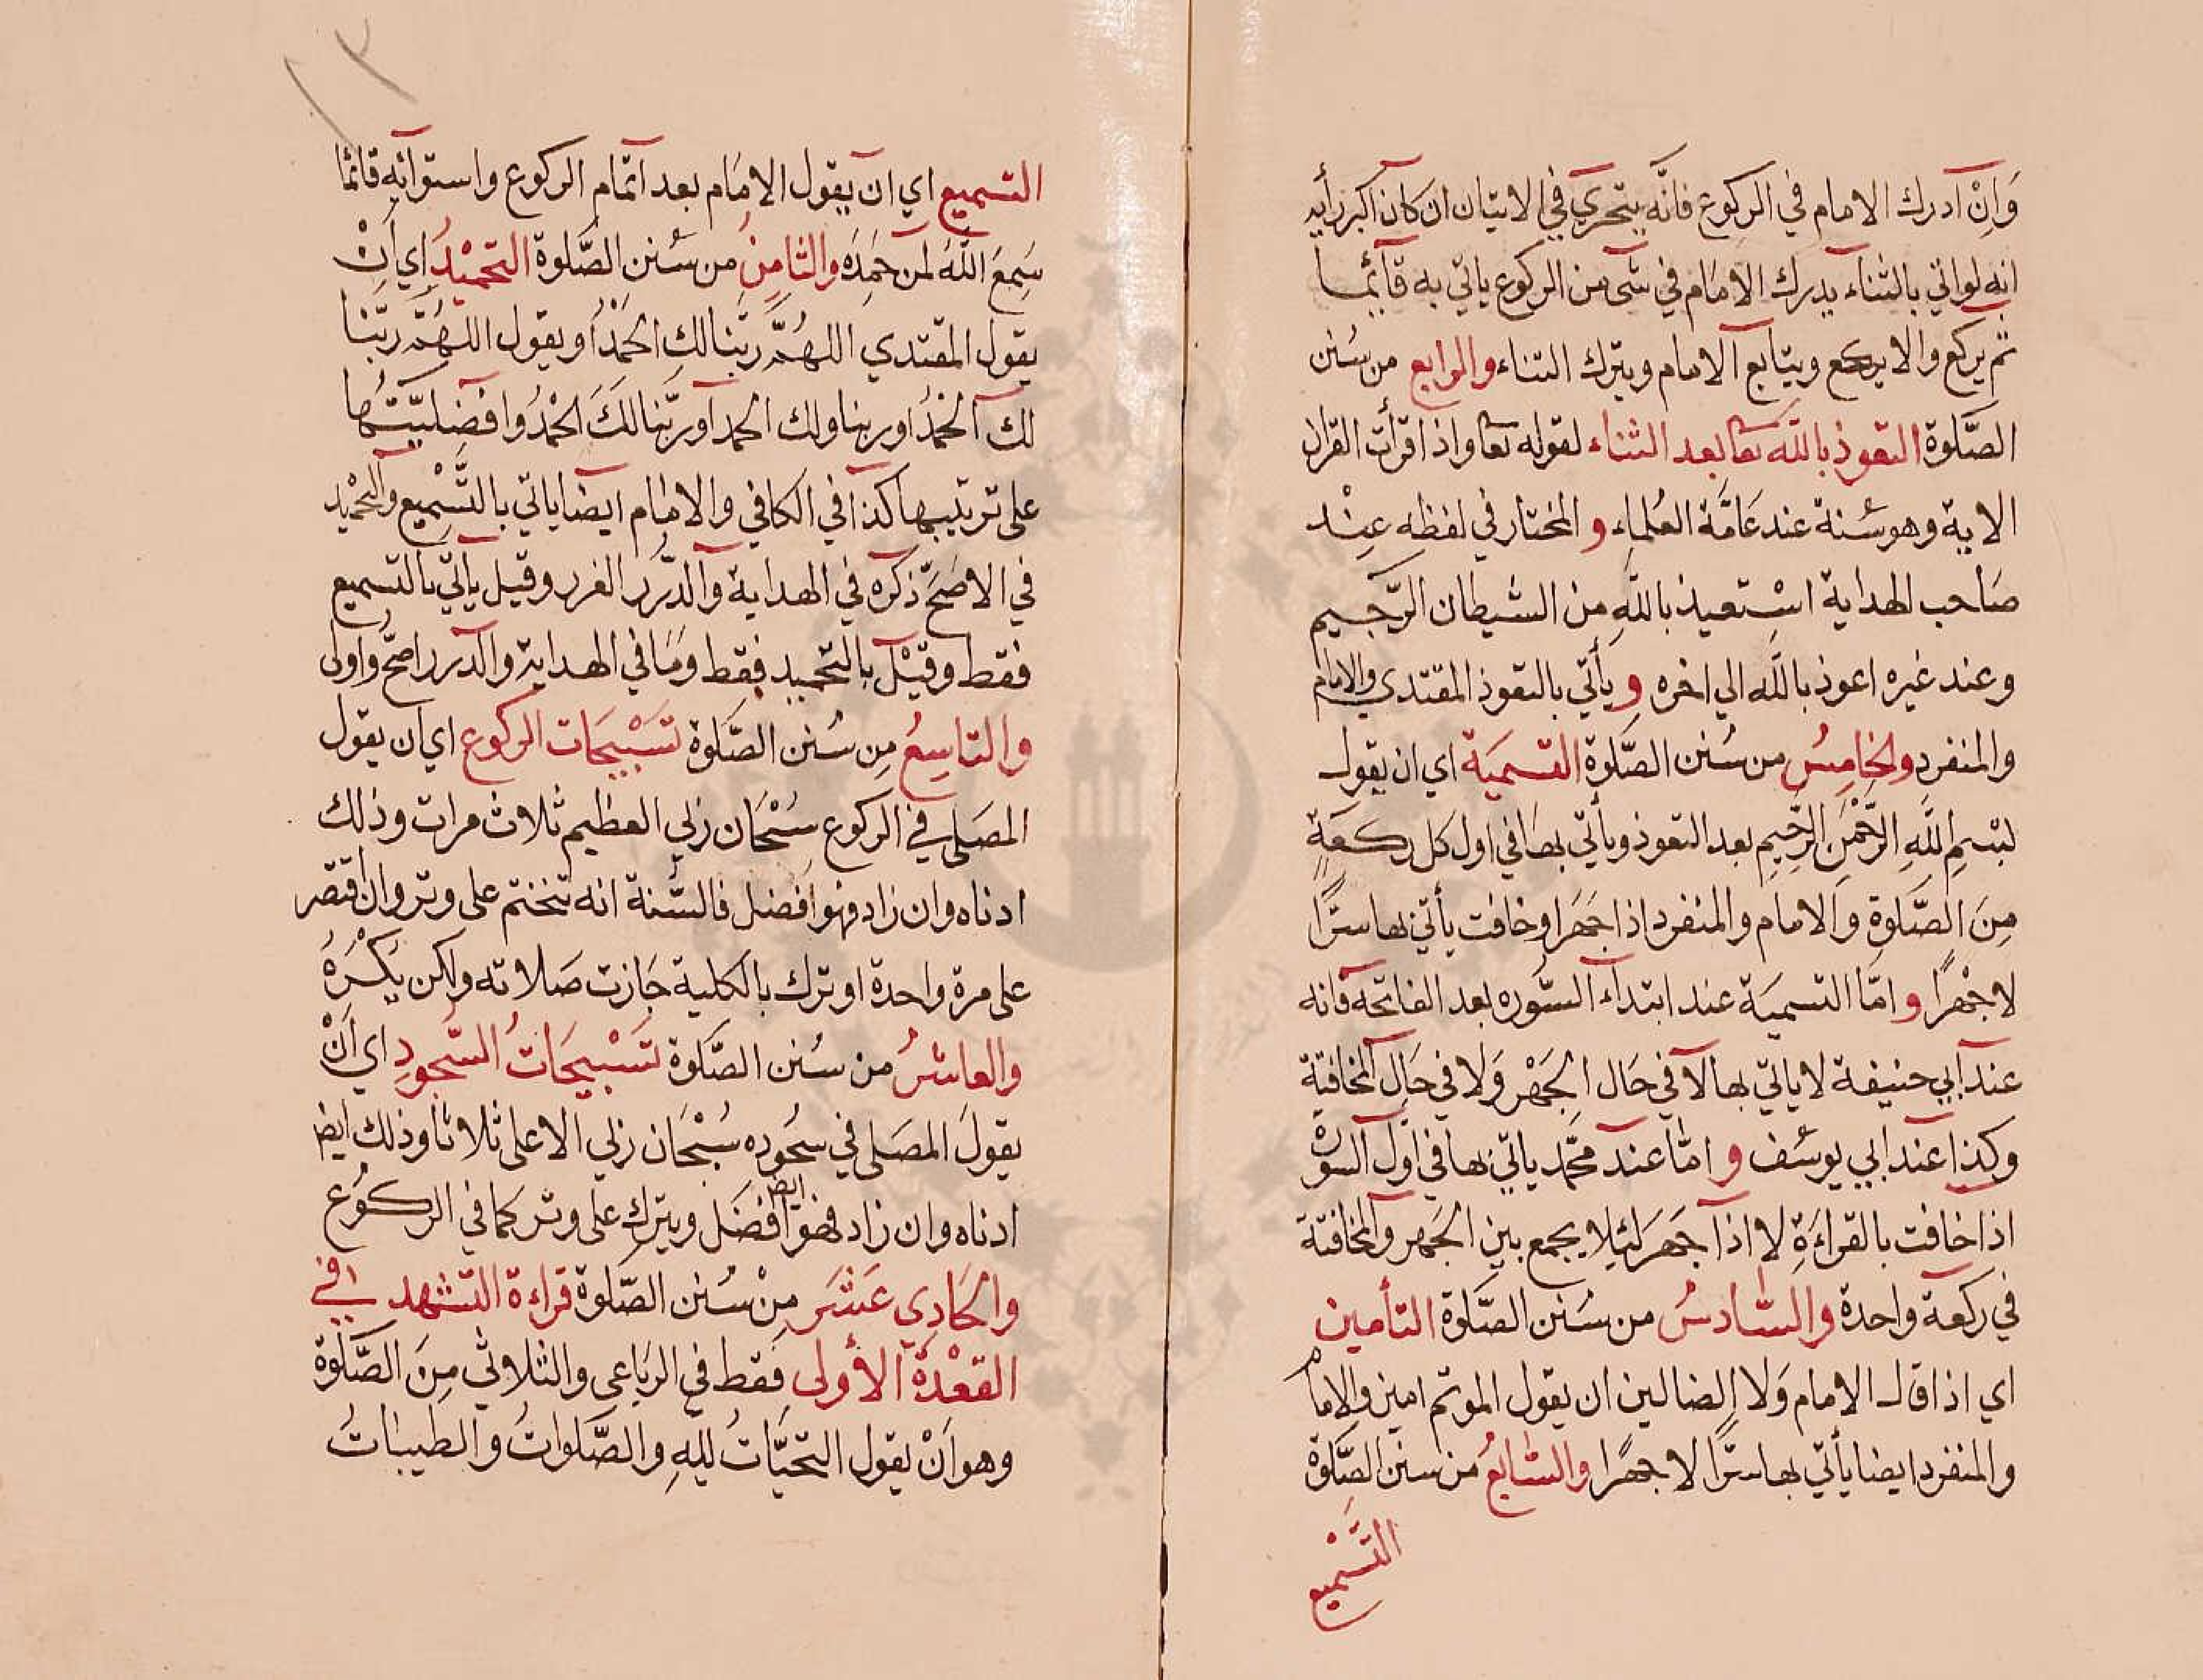 وَاِنْ ادرك الامام في الركوع فانّه يتحري في الاتيان ان كان اكبر رأيه
انه لواتي بالثناء يدرك الامَام في شئ من الركوع ياتي به قائمًا
ثم يركع والا يركع ويتابع الامام ويترك الثناء والرابع من سُنن
الصَّلوة التعوذ بالله تعا بعد الثناء لقوله تعا واذا قرأت القران
الاية وهو سُنة عند عَامَّة العُلماء و المختار في لفظه عِنْد
صَاحب الهداية اسْتعيذ باللهِ من الشيطان الرّجيم
وعند غيره اعوذ بالله الي اخره و يأتي بالتعوذ المقتدي والامام
والمنفرد والخامِسُ من سُنن الصَّلوة التسمَية اي ان يقول
بسْمِ اللَّهِ الرَّحْمَنِ الرَّحِيمِ بعد التعوذ ويأتي بها في اول كل ركعَةٍ
مِنَ الصَّلوةِ وَالامام والمنفرد اذا جَهَرا وخافت يأتي بها سرًّا
لا جهْرًا و امّا التسميَة عند ابتداء السّوره بعد الفاتحه فانه
عند ابي حنيفة لا ياتي بها لا في حَال الجَهْر وَلا في حَال المخافتة
وكذا عند ابي يوسُف و امّا عند محمّد ياتي بها في اول السورة
اذا خافت بالقراءَةِ لا اذا جَهَر لئلا يجمع بين الجَهر والمخافتة
في ركعة واحدة والسّادسُ من سُنن الصَّلوة التأمين
اي اذا قال الامام وَلا الضالين ان يقول الموتم امين والامام
والمنفرد ايضا يأتي بها سرًّا لا جهرًا والسّابعُ من سنن الصَّلوة
التَّسْميع
التسميع اي ان يقول الامَام بعد اتمام الركوع واستوائه قائما
سَمِعَ اللَّهُ لمن حَمِدَه والثامِنُ من سُنن الصَّلوة التحميْدُ اي انْ
يقول المقتدي اللهُمَّ ربّنا لك الحَمْدُ او يقول اللهُمَّ ربّنا
لك الحَمْدُ او ربنا ولك الحمد او ربَّنا لكَ الحمْدُ وافضليّتُها
على ترتيبها كذا في الكافي والامام ايضا ياتي بالتَّسْمِيع والتحْميد
في الاصَحّ ذكره في الهداية والدّرر الغرر وقيل يأتي بالتسميع
فقط وقيْل بالتحميد فقط ومَا في الهداية والدرر اصحّ واولى
والتاسِعُ مِن سُنن الصَّلوة تسَبْيحَات الركوع اي ان يقول
المصَلي في الركوع سُبْحَان ربي العظيم ثلاث مرات وذلك
ادناه وان زاد فهو افضل فالسُّنة انه تختم على وتر وان اقتصر
على مرة واحدة او ترك بالكلية جَازت صَلاته ولكن يُكْرَهُ
والعاشرُ من سُنن الصَّلوة تسَبْيحَاتُ السّجودِ اي انْ
يقولَ المصَلي في سجُوده سُبْحَان ربي الاعلى ثلاثا وذلك ايض
ادناه وان زاد فهو ايض افضَل ويترك على وتر كما في الركُوع
والحَادِي عَشَر مِنْ سُنن الصَّلوة قراءة التشهد في
القعْدة الأولى فقط في الرباعى والثلاثي مِنَ الصَّلوة
وهو اَنْ يقول التحيَّاتُ للهِ والصَّلواتُ والطيباتُ